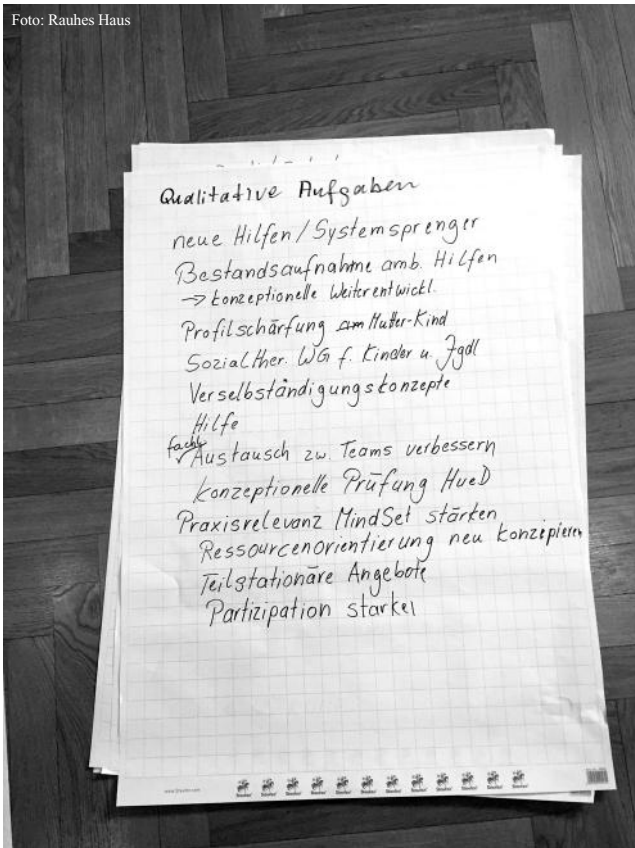 Foto: Rauhes Haus
Qualitative Aufgaben
neue Hilfen / Systemsprenger
Bestandsaufnahme amb. Hilfen
→ konzeptionelle Weiterentwickl.
Profilschärfung am Mutter-Kind
Sozialther. WG f. Kinder u. Jgdl
Verselbständigungskonzepte
Hilfe
fachl.
Austausch zw. Teams verbessern
konzeptionelle Prüfung HueD
Praxisrelevanz MindSet stärken
Ressourcenorientierung neu konzipieren
Teilstationäre Angebote
Partizipation